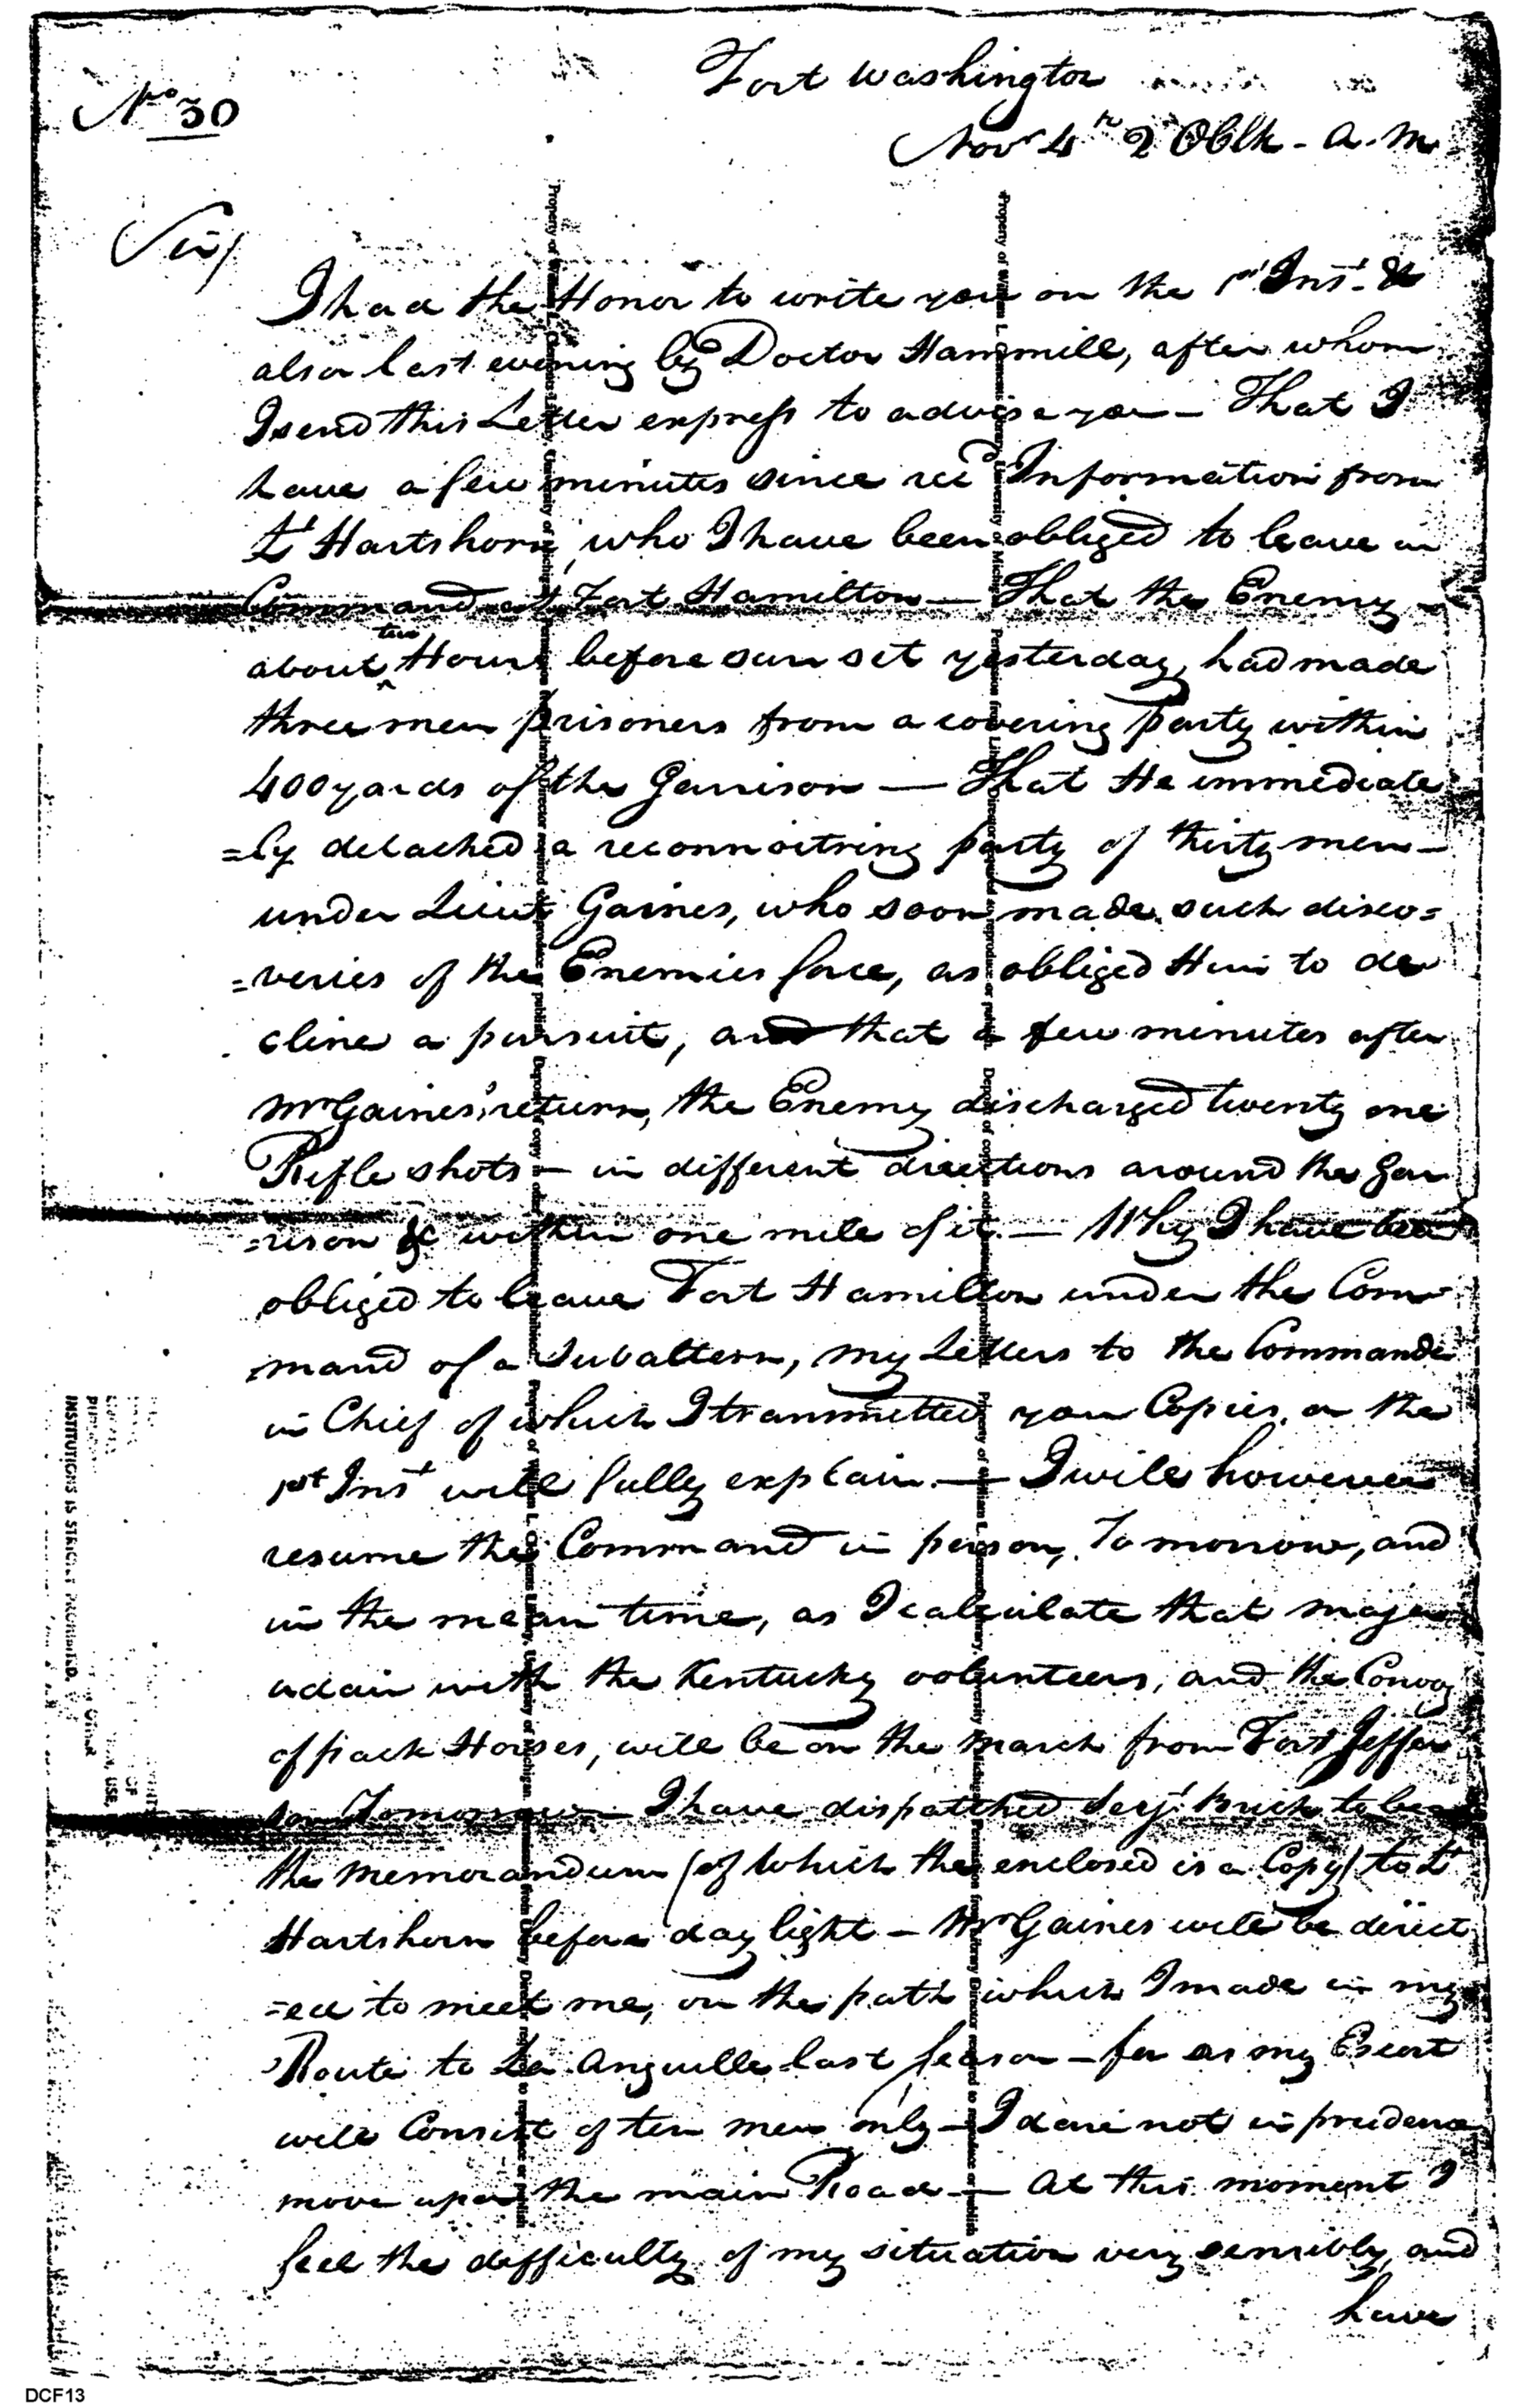 No 30
Fort Washington
Novr 4th 2 OClk - a.m.
Sir/
I had the Honor to write you on the 1st Inst. &
also last evening by Doctor Hammill, after whom
I send this Letter express to advise you — That I
have a few minutes since recd Information from
Lt Hartshorn, who I have been obliged to leave in
Command at Fort Hamilton — That the Enemy
about two Hours before sun set yesterday, had made
three men prisoners from a covering party within
400 yards of the Garrison — That He immediate
=ly detached a reconnoitring party of thirty men —
under Lieut Gaines, who soon made such disco=
=veries of the Enemies force, as obliged Him to de
cline a pursuit, and that a few minutes after
Mr Gaines's return, the Enemy discharged twenty one
Rifle shots — in different directions around the Gar
=rison & within one mile of it. — Why I have been
obliged to leave Fort Hamilton under the Com=
mand of a Subaltern, my Letters to the Commander
in Chief of which I transmitted you Copies, on the
1st Inst will fully explain. — I will however
resume the Command in person, To morrow, and
in the mean time, as I calculate that Major
Adair with the Kentucky volunteers, and the Convoy
of pack Horses, will be on the march from Fort Jeffer
son Tomorrow — I have dispatched Serjt to bear
the memorandum (of which the enclosed is a Copy) to Lt
Hartshorn before day light — Mr Gaines will be direct
=ed to meet me, on the path which I made in my
Route to Le Anguille last season — for as my Escort
will Consist of ten men only — I dare not in prudence
move upon the main Road — At this moment I
feel the difficulty of my situation very sensibly, and
have
Property of William L. Clements Library, University of Michigan. Permission from Library Director required to reproduce or publish. Deposit of copy in other institutions prohibited.
Property of William L. Clements Library, University of Michigan. Permission from Library Director required to reproduce or publish. Deposit of copy in other institutions prohibited.
INSTITUTIONS IS STRICTLY PROHIBITED.
DCF13